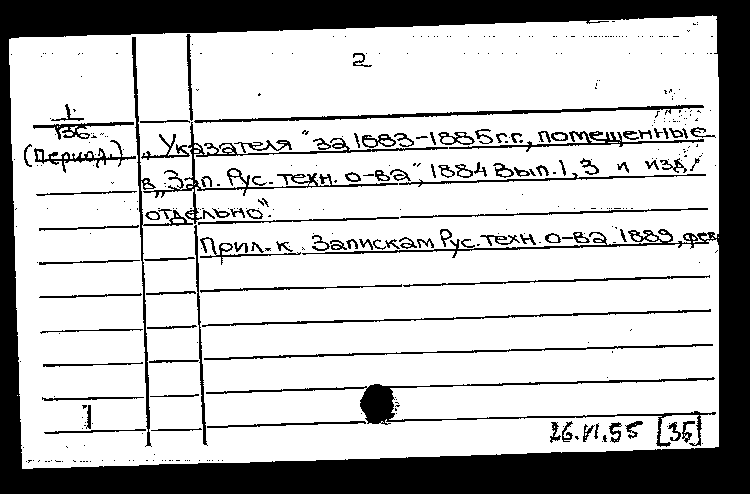 2
1
136.
(Период.)
„Указателя" за 1883-1885 г.г., помещенные
в „Зап. Рус. техн. о-ва", 1884 Вып. 1, 3 и изд.
отдельно".
Прил. к. Запискам Рус. техн. о-ва. 1889, фев
1
26.VI.55 [36]